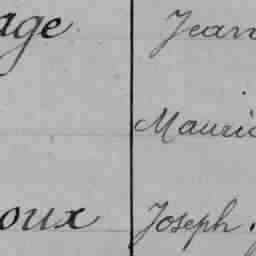 age Jean
Mauric
oux Joseph